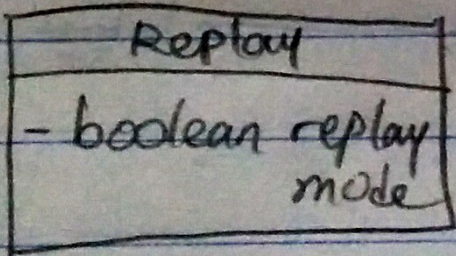 Replay
- boolean replay
mode